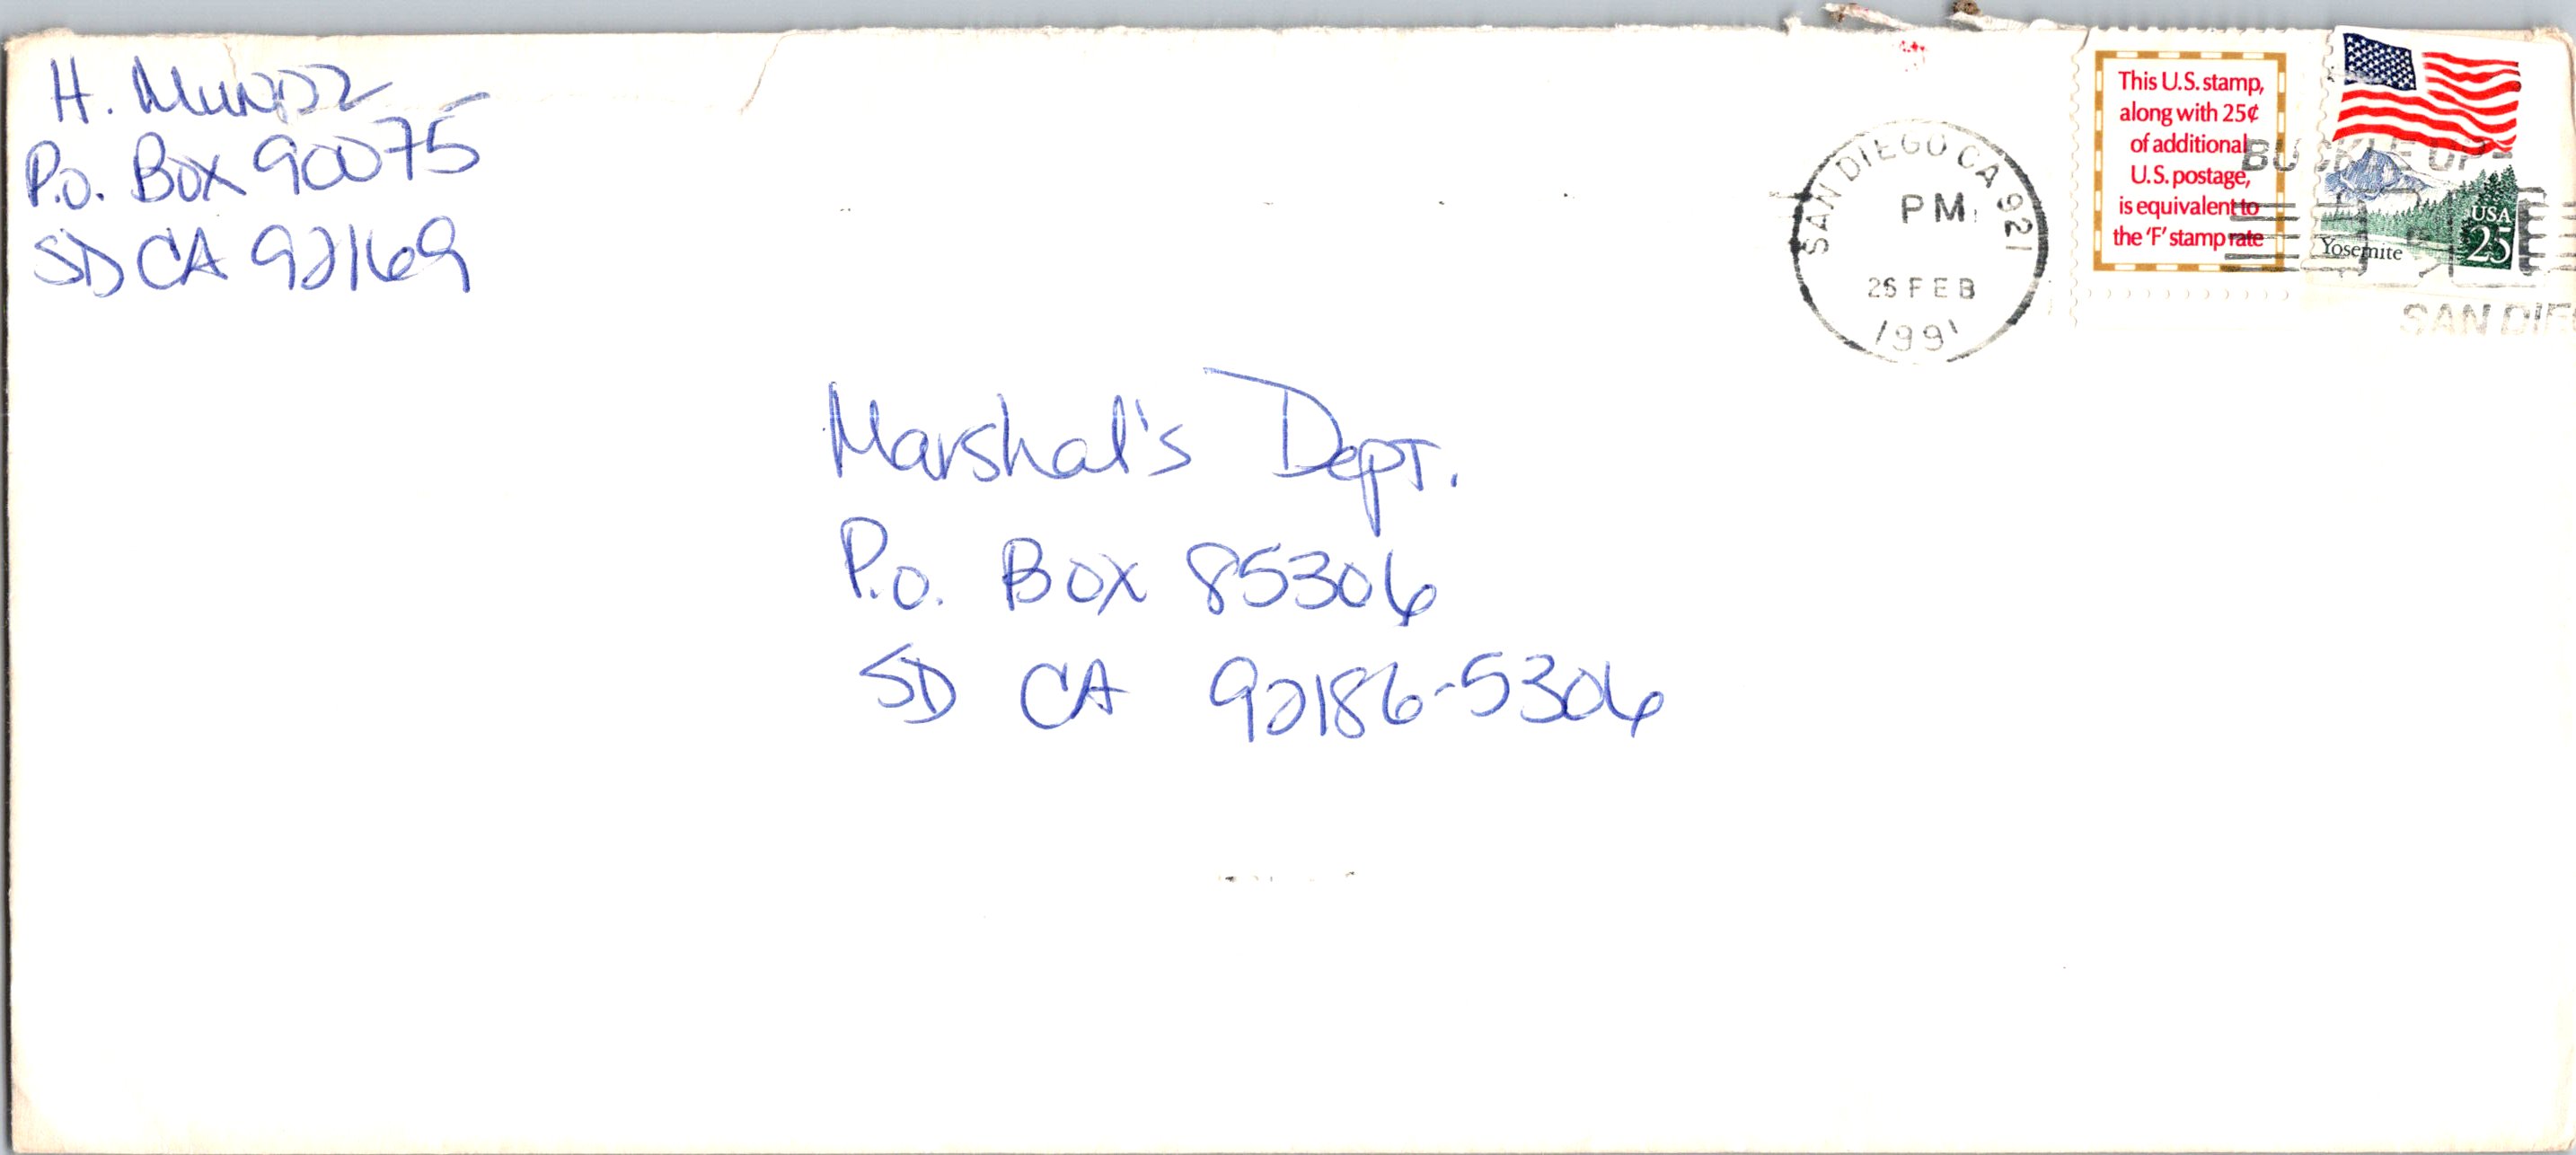 H. Munoz
P.O. Box 90075
SD CA 92169
SAN DIEGO CA 921
PM
26 FEB
1991
This U.S. stamp,
along with 25¢
of additional
U.S. postage,
is equivalent to
the 'F' stamp rate
BUCKLE UP
USA
25
Yosemite
SAN DIE
Marshal's Dept.
P.O. Box 85306
SD CA 92186-5306